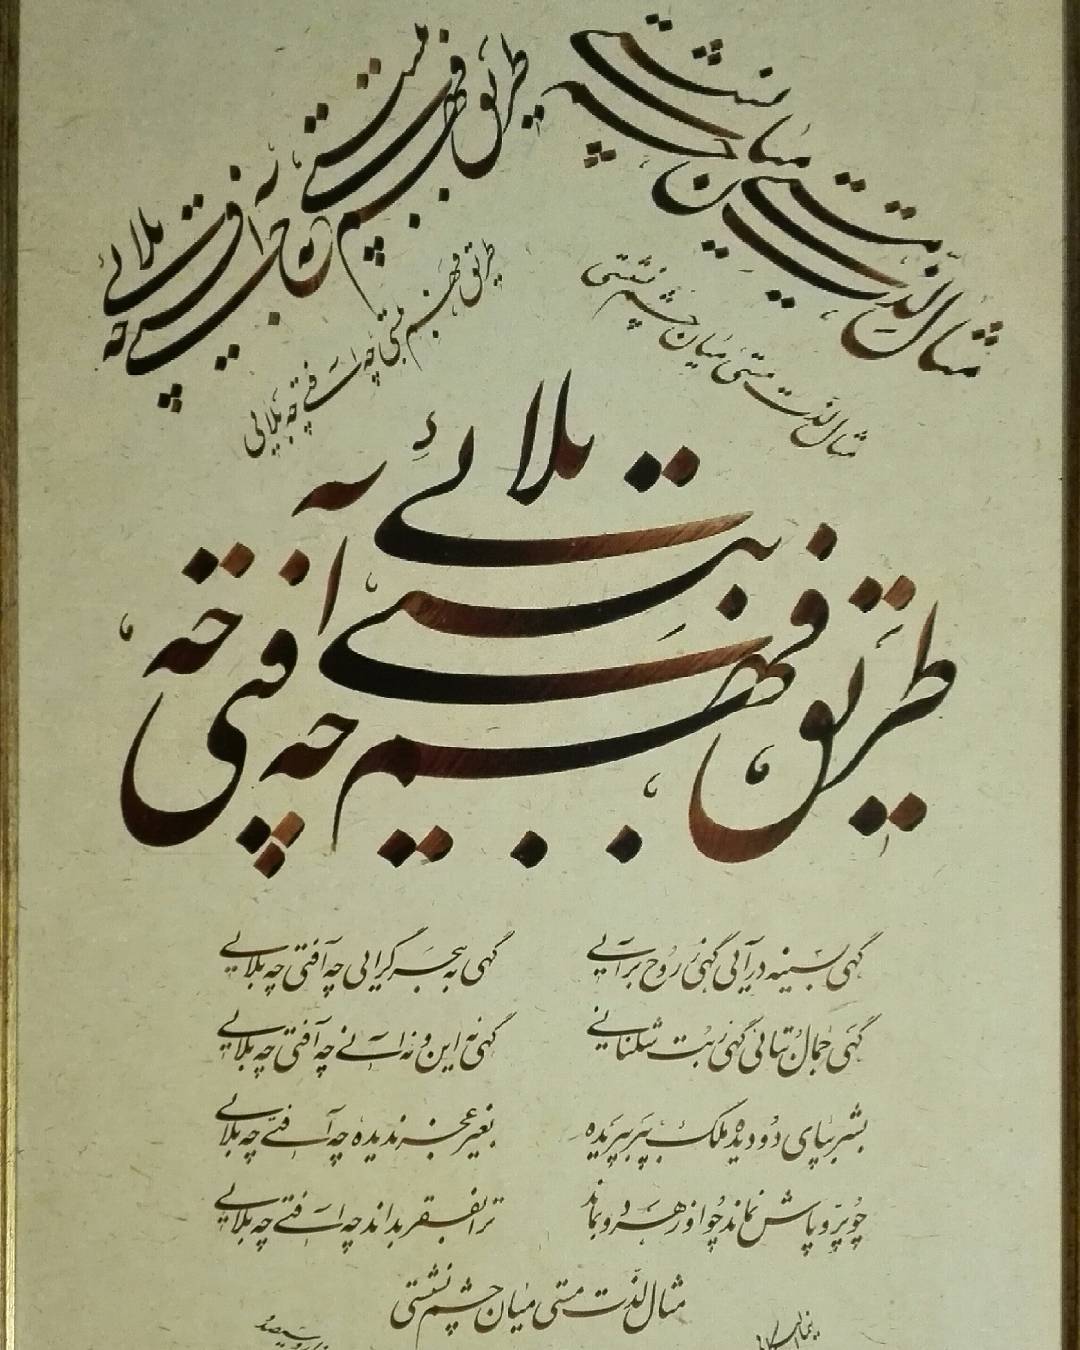 مثال لذت مستی میان چشم نشستی
طریق فهم ببستی چه آفتی چه بلائی
مثال لذت مستی میان چشم نشستی
طریق فهم ببستی چه آفتی چه بلایی
طریق فهم ببستی چه آفتی چه بلائی
گهی به سینه درآیی گهی ز روح برآیی
گهی به هجر گرایی چه آفتی چه بلایی
گهی جمال بتانی گهی ز بت شکنانی
گهی نه این و نه آنی چه آفتی چه بلایی
بشر بپای دویده ملک بپر بپریده
بغیر عجز ندیده چه آفتی چه بلایی
چو پر و پاش نماند چو او ز هر دو بماند
ترا بفقر بداند چه آفتی چه بلایی
مثال لذت مستی میان چشم نشستی